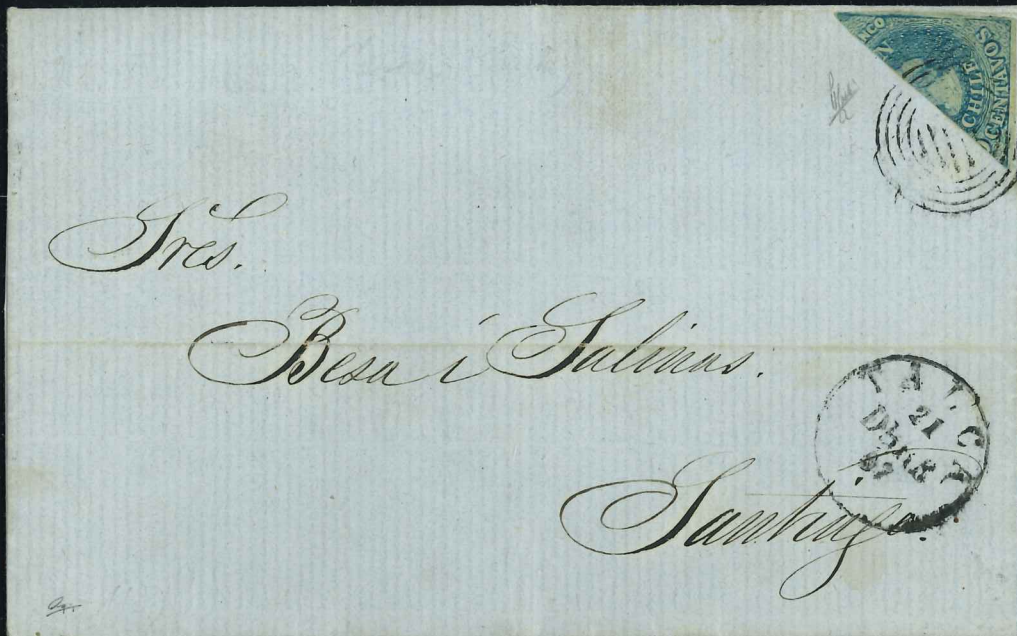 NCO
CHILE
CENTAVOS
Sres.
Besa i Salinas.
TALCA
21
DBRE
Santiago.